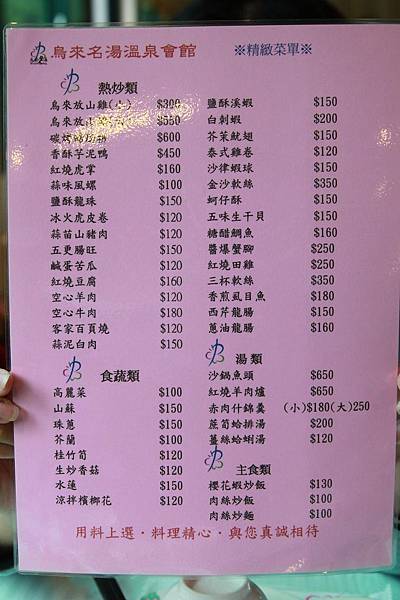 烏來名湯溫泉會館 ※精緻菜單※
熱炒類
烏來放山雞(小) $300
烏來放山 $550
$600
香酥芋泥鴨 $450
紅燒虎掌 $160
蒜味風螺 $100
鹽酥龍珠 $150
冰火虎皮卷 $120
蒜苗山豬肉 $120
五更腸旺 $150
鹹蛋苦瓜 $120
紅燒豆腐 $160
空心羊肉 $120
空心牛肉 $180
客家百頁燒 $120
蒜泥白肉 $150
鹽酥溪蝦 $150
白刺蝦 $200
芥茉魷翅 $150
泰式雞卷 $120
沙律蝦球 $150
金沙軟絲 $350
蚵仔酥 $150
五味生干貝 $150
糖醋鯛魚 $160
醬爆蟹腳 $250
紅燒田雞 $250
三杯軟絲 $350
香煎虱目魚 $180
西芹龍腸 $150
蔥油龍腸 $160
食蔬類
高麗菜 $100
山蘇 $150
珠蔥 $150
芥蘭 $100
桂竹筍 $120
生炒香菇 $120
水蓮 $150
涼拌檳榔花 $120
湯類
沙鍋魚頭 $650
紅燒羊肉爐 $650
赤肉什錦羹 (小)$180(大)250
蔗筍蛤排湯 $200
薑絲蛤蜊湯 $120
主食類
櫻花蝦炒飯 $130
肉絲炒飯 $100
肉絲炒麵 $100
用料上選‧料理精心‧與您真誠相待